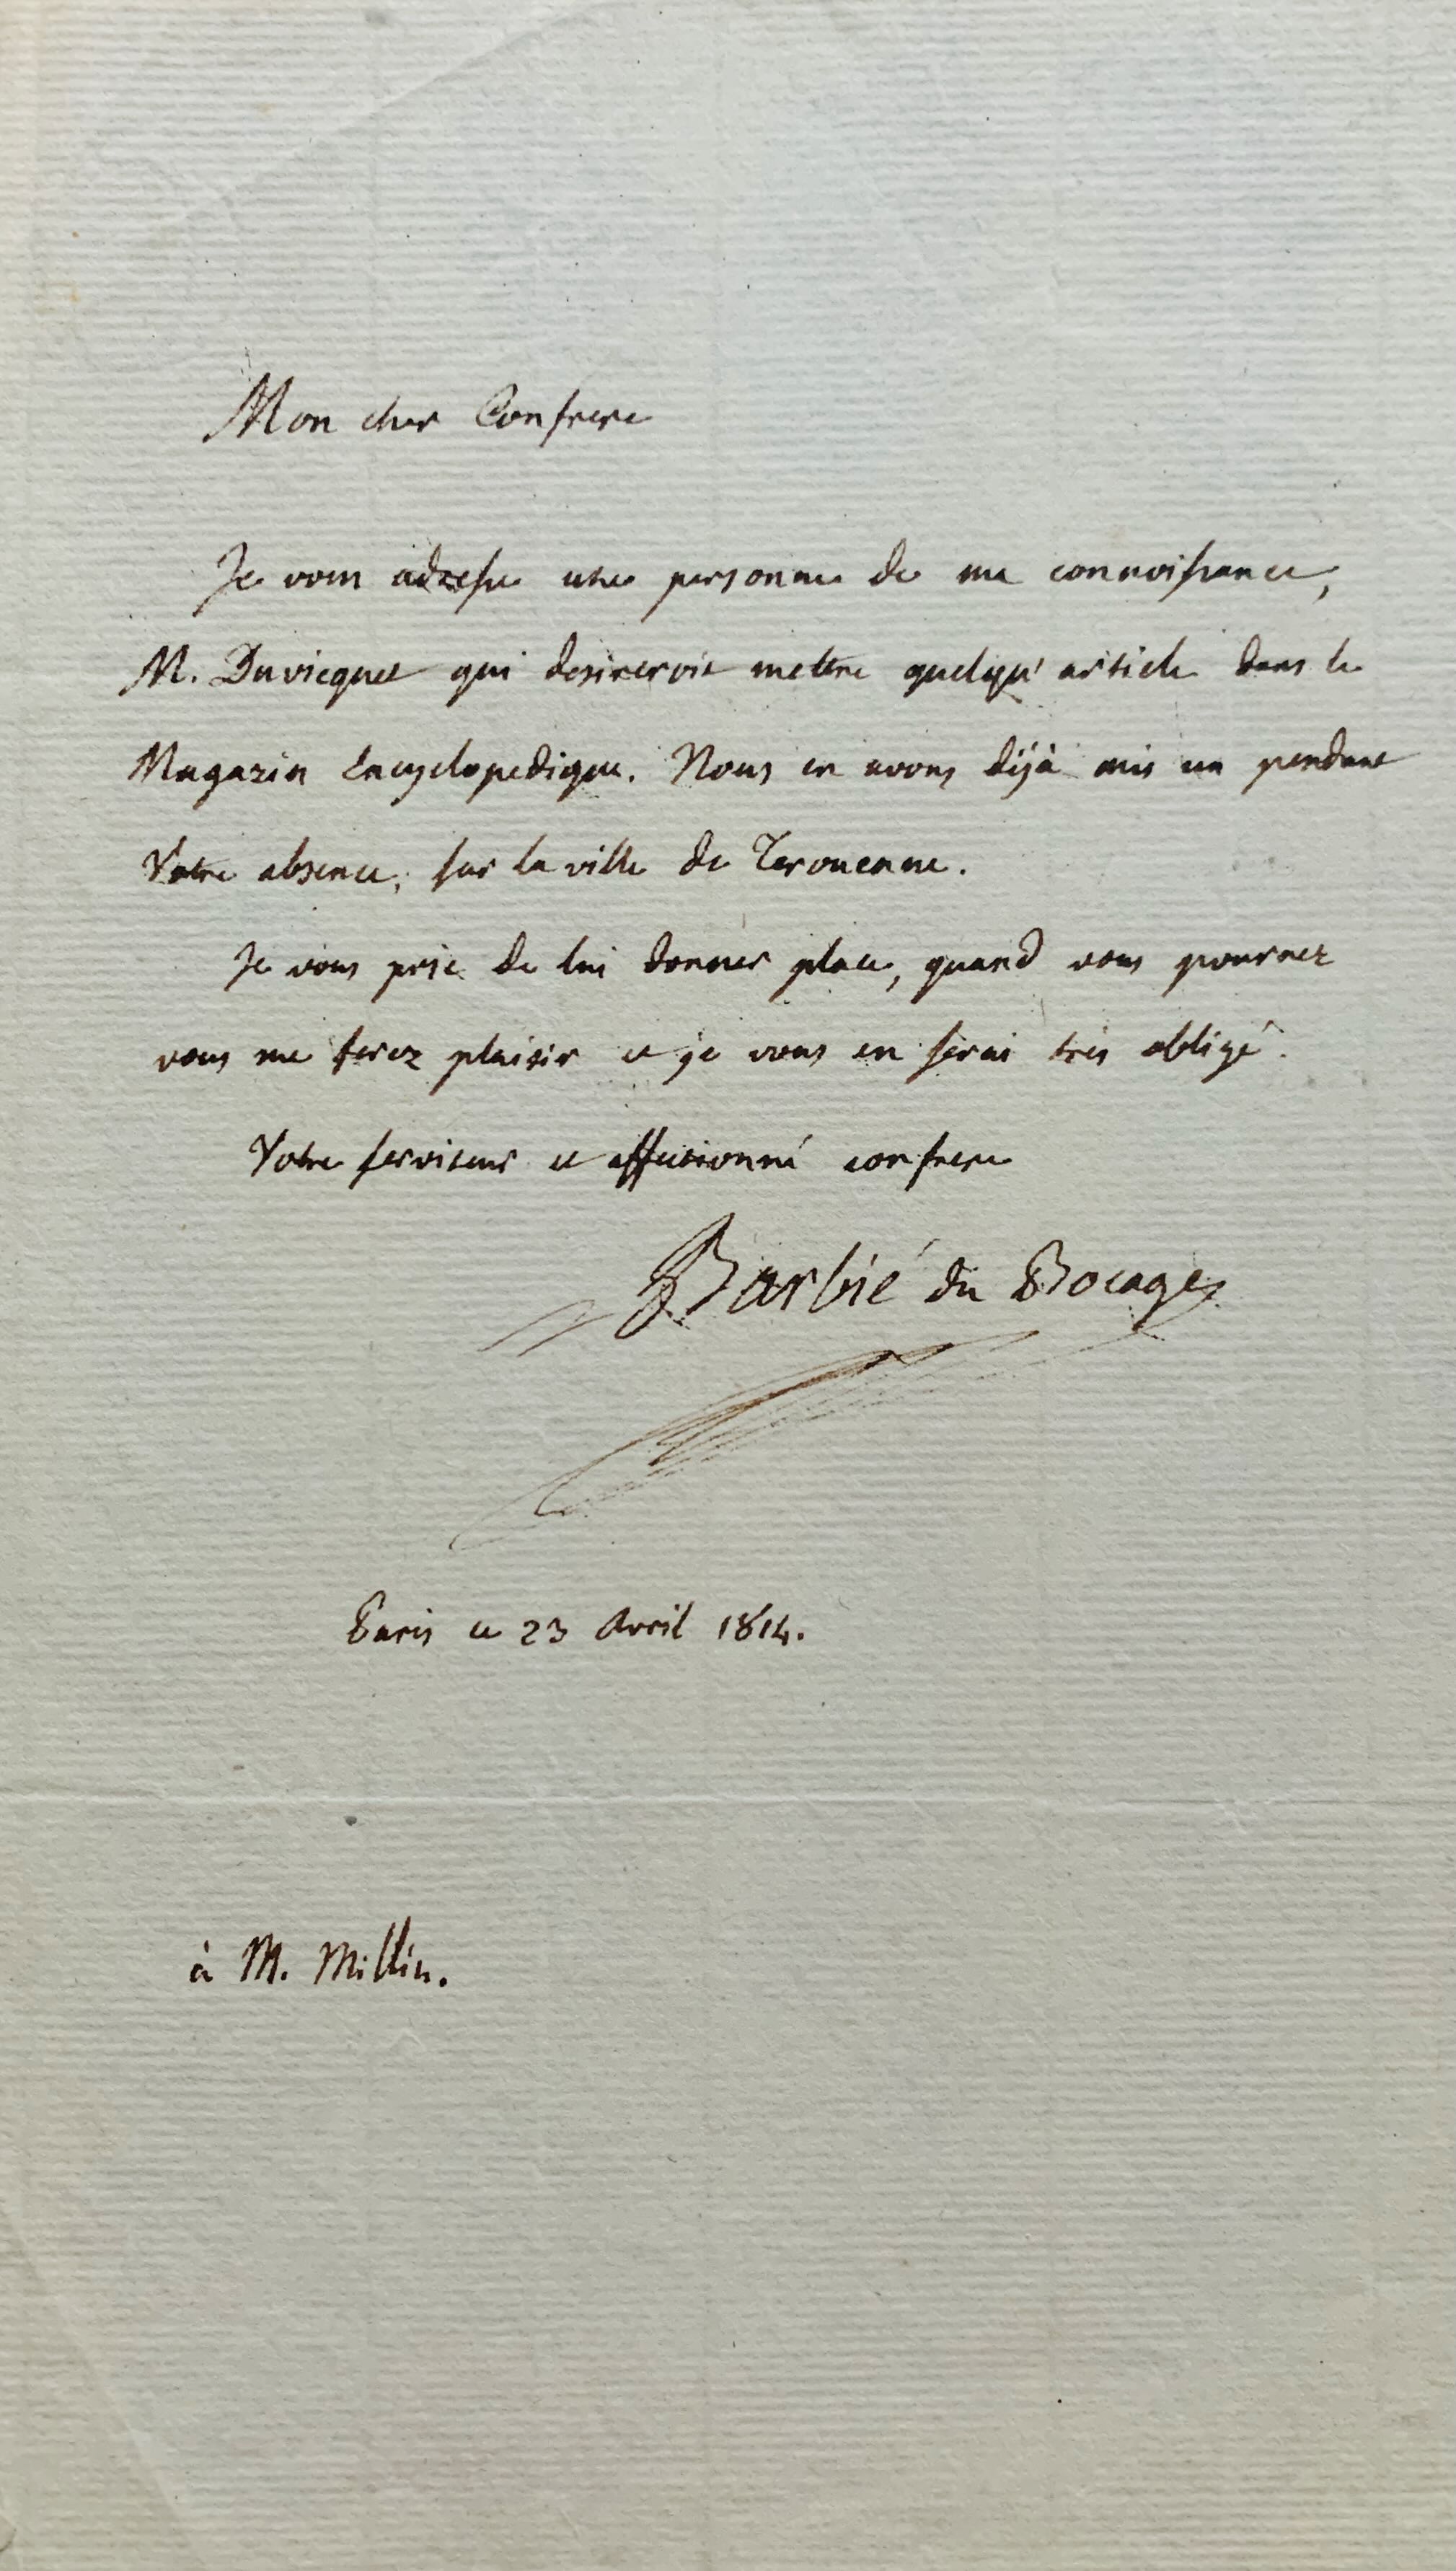 Mon cher Confrere
Je vous adresse une personne de ma connoissance,
M. Duvicquet qui desireroit mettre quelqu'article dans le
Magazin Encyclopedique. Nous en avons déjà mis un pendant
Votre absence, sur la ville de Terouenne.
Je vous prie de lui donner place, quand vous pourrez
vous me ferez plaisir et je vous en serai très obligé.
Votre serviteur et affectionné confrere
Barbié du Bocage
Paris ce 23 Avril 1814.
à M. Millin.